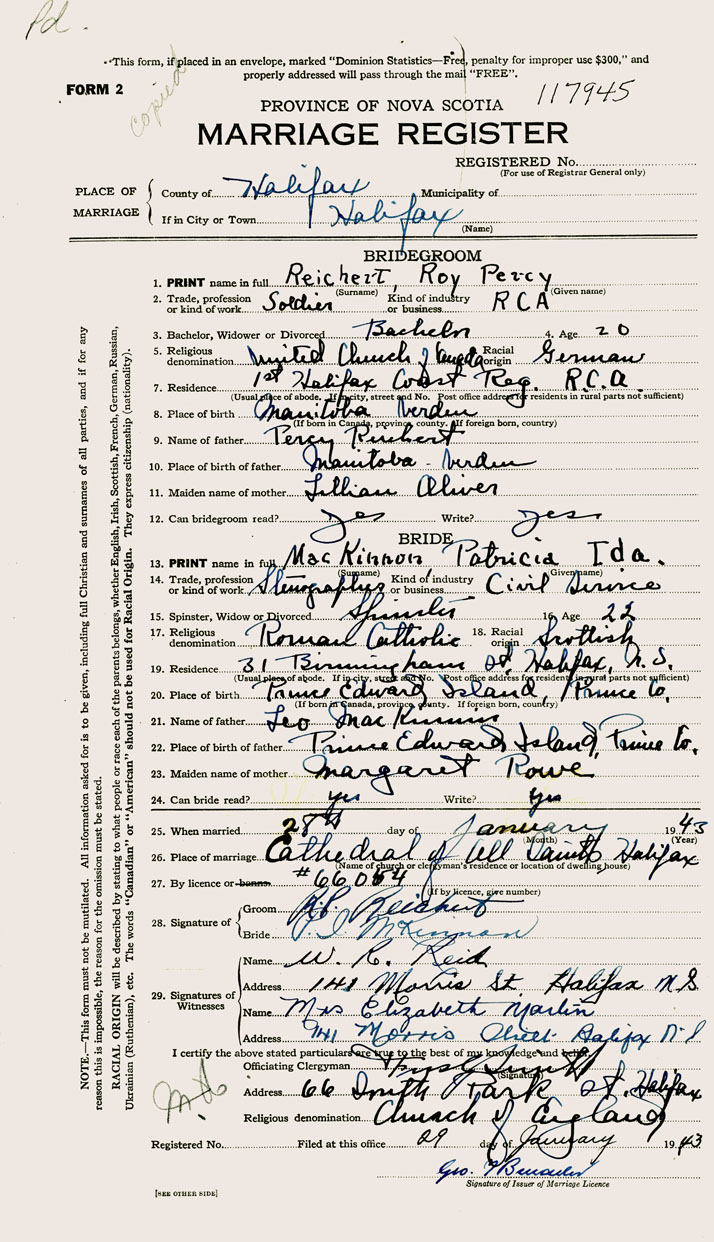 Pd.
"This form, if placed in an envelope, marked "Dominion Statistics—Free, penalty for improper use $300," and
properly addressed will pass through the mail "FREE".
FORM 2
copied
PROVINCE OF NOVA SCOTIA
117945
MARRIAGE REGISTER
REGISTERED No.
(For use of Registrar General only)
PLACE OF MARRIAGE
County of Halifax Municipality of
If in City or Town Halifax
(Name)
BRIDEGROOM
1. PRINT name in full Reichert, Roy Percy
(Surname) (Given name)
2. Trade, profession or kind of work Soldier Kind of industry or business R C A
3. Bachelor, Widower or Divorced Bachelor 4. Age 20
5. Religious denomination United Church of Canada Racial origin German
7. Residence 1st Halifax Coast Reg. R.C.A.
(Usual place of abode. If in city, street and No. Post office address for residents in rural parts not sufficient)
8. Place of birth Manitoba Verden
(If born in Canada, province, county. If foreign born, country)
9. Name of father Percy Reichert
10. Place of birth of father Manitoba - Verden
11. Maiden name of mother Lillian Oliver
12. Can bridegroom read? Yes Write? Yes
BRIDE
13. PRINT name in full MacKinnon, Patricia Ida.
(Surname) (Given name)
14. Trade, profession or kind of work Stenographer Kind of industry or business Civil Service
15. Spinster, Widow or Divorced Spinster 16. Age 22
17. Religious denomination Roman Catholic 18. Racial origin Scottish
19. Residence 31 Birmingham St, Halifax, N.S.
(Usual place of abode. If in city, street and No. Post office address for residents in rural parts not sufficient)
20. Place of birth Prince Edward Island, Prince Co.
(If born in Canada, province, county. If foreign born, country)
21. Name of father Leo MacKinnon
22. Place of birth of father Prince Edward Island, Prince Co.
23. Maiden name of mother Margaret Rowe
24. Can bride read? yes Write? yes
25. When married 28th day of January 1943
(Month) (Year)
26. Place of marriage Cathedral of All Saints Halifax
(Name of church or clergyman's residence or location of dwelling house)
27. By licence or banns #66084
(If by licence, give number)
28. Signature of
Groom R P Reichert
Bride P. I. McKinnon
29. Signatures of Witnesses
Name W. R. Reid
Address 141 Morris St. Halifax N.S.
Name Mrs Elizabeth Martin
Address 141 Morris Street Halifax N S
I certify the above stated particulars are true to the best of my knowledge and belief.
Officiating Clergyman
(Signature)
Address 66 South Park St. Halifax
Religious denomination Church of England
Registered No. Filed at this office 29 day of January 1943
Geo.
Signature of Issuer of Marriage Licence
[SEE OTHER SIDE]
NOTE.—This form must not be mutilated. All information asked for is to be given, including full Christian and surnames of all parties, and if for any
reason this is impossible, the reason for the omission must be stated.
RACIAL ORIGIN will be described by stating to what people or race each of the parents belongs, whether English, Irish, Scottish, French, German, Russian,
Ukrainian (Ruthenian), etc. The words "Canadian" or "American" should not be used for Racial Origin. They express citizenship (nationality).